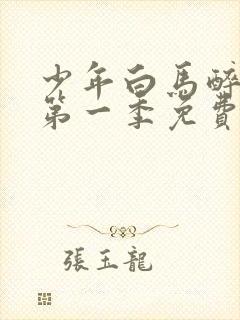 少年白馬醉
第一季免費
張玉龍